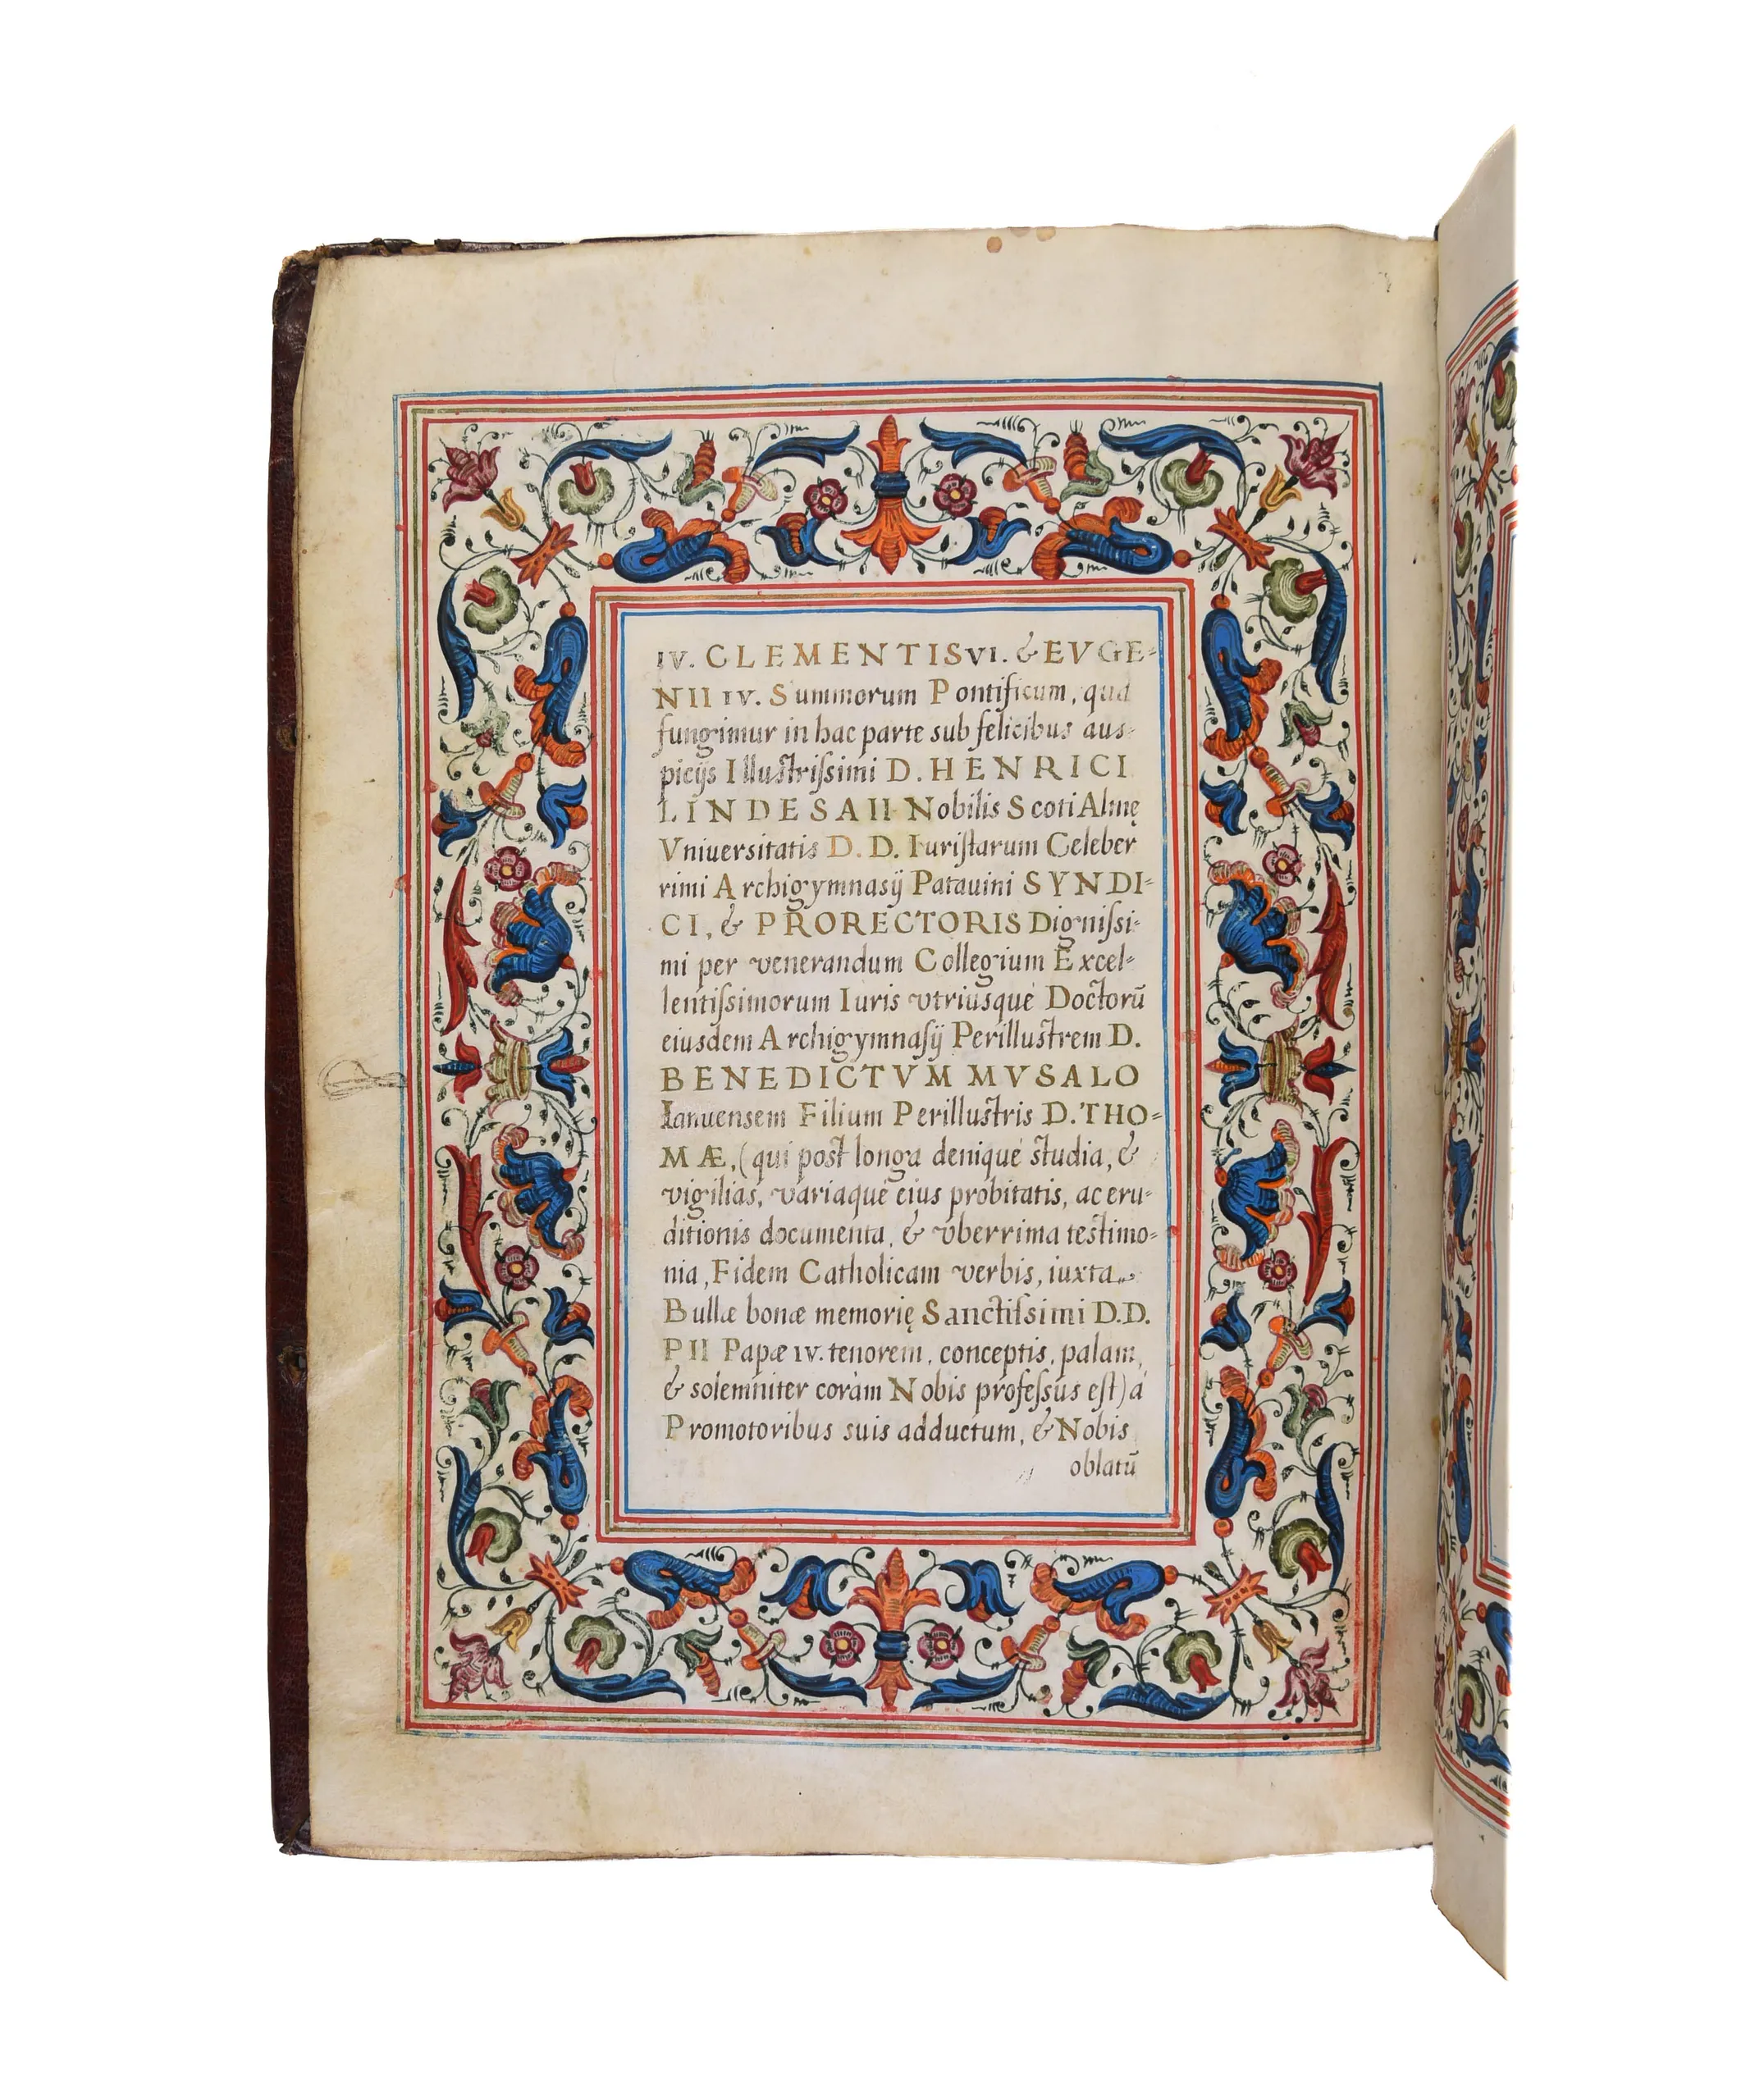 IV. CLEMENTIS VI. & EVGE-
NII IV. Summorum Pontificum, qua
fungimur in hac parte sub felicibus aus-
picijs Illustrissimi D. HENRICI
LINDESAII Nobilis Scoti Almę
Vniuersitatis D. D. Iuristarum Celeber
rimi Archigymnasij Patauini SYNDI-
CI, & PRORECTORIS Dignissi-
mi per venerandum Collegium Excel-
lentissimorum Iuris vtriusque Doctorū
eiusdem Archigymnasij Perillustrem D.
BENEDICTVM MVSALO
Ianuensem Filium Perillustris D. THO-
MÆ, (qui post longa denique studia, &
vigilias, variaque eius probitatis, ac eru-
ditionis documenta, & vberrima testimo-
nia, Fidem Catholicam verbis, iuxta
Bullæ bonæ memorię Sanctissimi D.D.
PII Papæ IV. tenorem, conceptis, palam,
& solemniter coràm Nobis professus est) à
Promotoribus suis adductum, & Nobis
oblatū